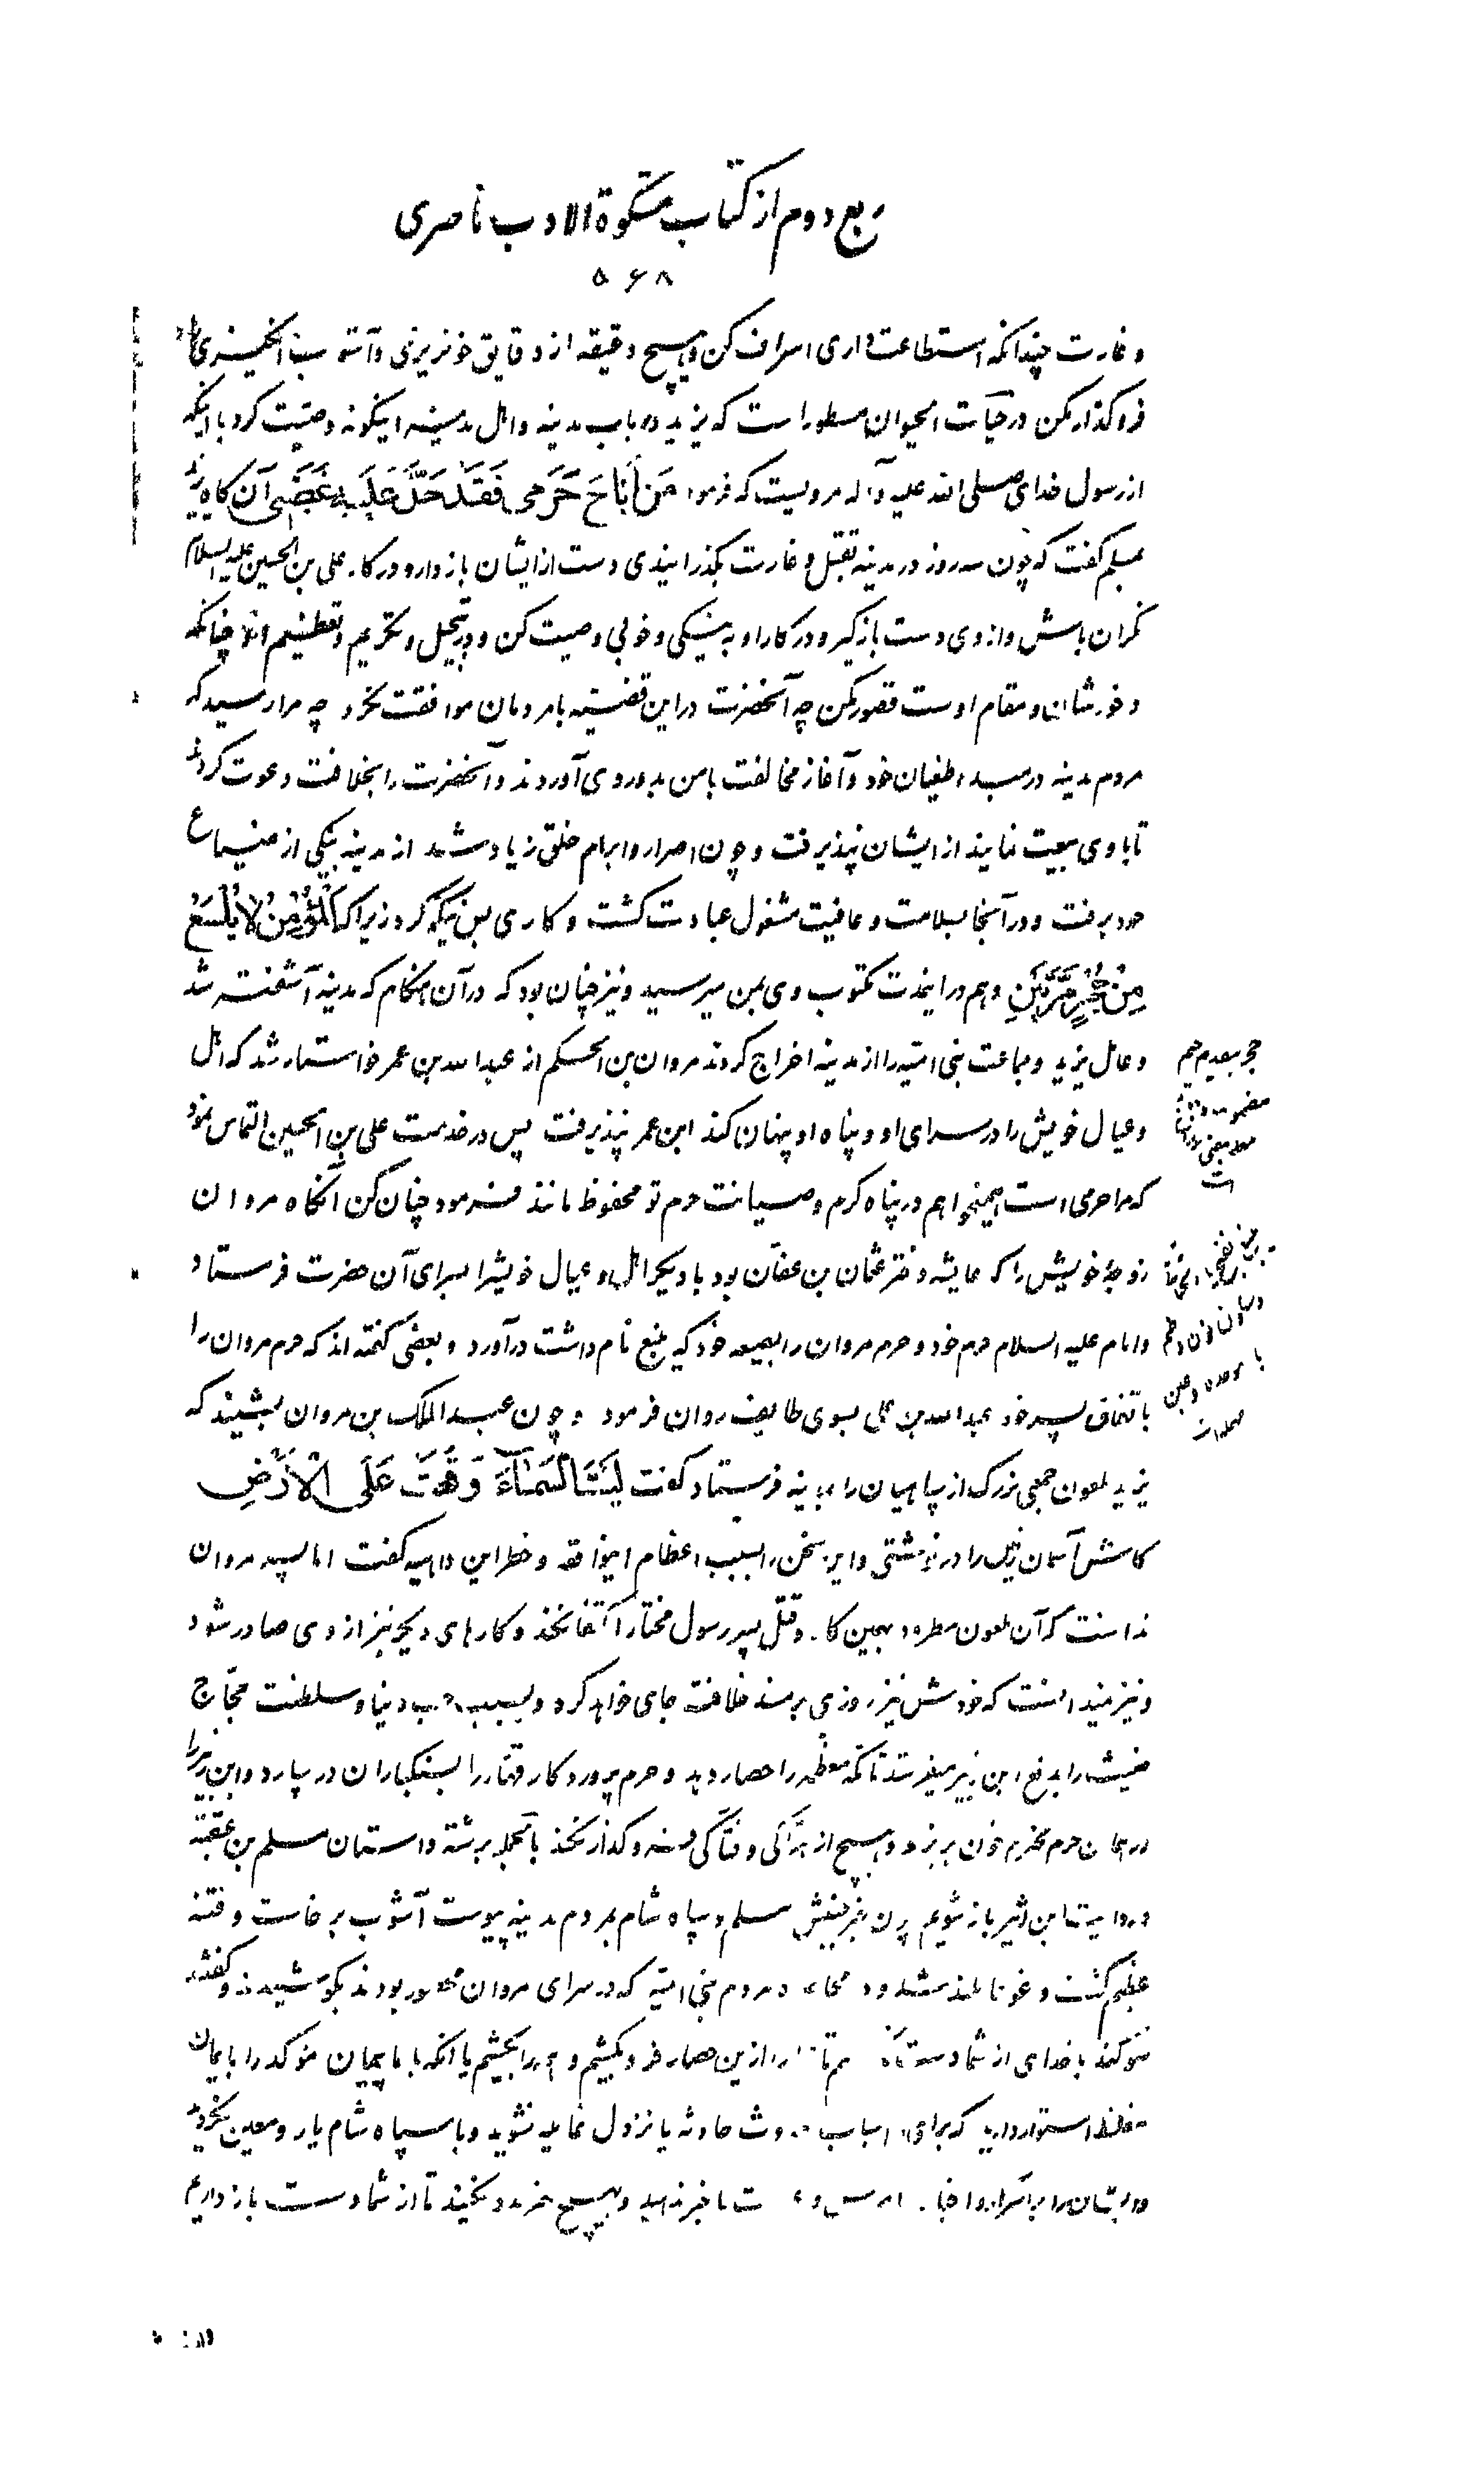 ربع دوم از کتاب مشکوة الادب ناصری
۵۶۸
و غارت چندانکه استطاعت داری اسراف کن و هیچ دقیقه از دقایق خونریزی و آشوب انگیزی را
فروگذار مکن در حیات الحیوان مسطور است که یزید در باب مدینه و اهل مدینه اینگونه وصیت کرد با اینکه
از رسول خدای صلی الله علیه و آله مرویست که فرمود مَن أَباحَ حَرَمی فَقَد حَلَّ عَلَیهِ غَضَبی آن گاه یزید
بمسلم گفت که چون سه روز در مدینه بقتل و غارت بگذرانیدی دست از ایشان بازدار و در کار علی بن الحسین علیه السلام
نگران باش و از وی دست بازگیر و در کار او به نیکی و خوبی وصیت کن و در تبجیل و تکریم و تعظیم او چنانکه
درخور شان و مقام اوست قصور مکن چه آنحضرت در این قضیه با مردمان موافقت نکرد چه مرا رسید که
مردم مدینه در مبدء طغیان خود و آغاز مخالفت با من بدو روی آوردند و آنحضرت را بخلافت دعوت کردند
تا با وی بیعت نمایند از ایشان نپذیرفت و چون اصرار و ابرام خلق زیاد شد از مدینه بیکی از ضیاع
خود برفت و در آنجا بسلامت و عافیت مشغول عبادت گشت و کاری بس نیکو کرد زیرا که اَلمُؤمِنُ لا یُلسَعُ
مِن جُحرٍ مَرَّتَینِ و هم در اینمدت مکتوب وی بمن میرسید و نیز چنان بود که در آن هنگام که مدینه آشفته شد
و عامل یزید و جماعت بنی امیه را از مدینه اخراج کردند مروان بن الحکم از عبدالله بن عمر خواستار شد که اهل
و عیال خویش را در سرای او و پناه او پنهان کند ابن عمر نپذیرفت پس در خدمت علی بن الحسین التماس نمود
که مرا حرمی است همیخواهم در پناه کرم و صیانت حرم تو محفوظ مانند فرمود چنان کن آنگاه مروان
زوجهٔ خویش را که عایشه دختر عثمان بن عفان بود با دیگر اهل و عیال خویش را بسرای آن حضرت فرستاد
و امام علیه السلام حرم خود و حرم مروان را بضیعه خود که ینبع نام داشت درآورد و بعضی گفته اند که حرم مروان را
باتفاق پسر خود عبدالله بن علی بسوی طایف روان فرمود و چون عبدالملک بن مروان بشنید که
یزید ملعون جمعی بزرگ از سپاهیان را بمدینه فرستاد گفت لَیتَ السَّمآءَ وَقَعَت عَلَی الاَرضِ
کاش آسمان نیل را در نوشتی و این سخن را بسبب اعظام اینواقعه و خطر این داهیه گفت اما پسر مروان
ندانست که آن ملعون مطرود بهمین کار و قتل پسر رسول مختار اکتفا نکند و کارهای دیگر نیز از وی صادر شود
و نیز میندانست که خودش نیز روزی بر مسند خلافت جای خواهد کرد و بسبب حب دنیا و سلطنت حجاج
خبیث را بدفع ابن زبیر میفرستد تا مکه معظمه را حصار دهد و حرم پروردگار قهار را بسنگباران درسپارد و ابن زبیر را
در همان حرم محترم خون بریزد و هیچ از هتاکی و فتاکی فروگذار نکند بالجمله برشته داستان مسلم بن عقبه
و روایت ابن اثیر باز شویم چون خبر جنبش مسلم و سپاه شام بمردم مدینه پیوست آشوب برخاست و فتنه
عظیم گشت و غوغا بلند شد و مردم بنی امیه که در سرای مروان محصور بودند بکوشیدند و گفتند
سوگند با خدای از شما دست تا از این حصار فرو کشیم و همه را بکشیم یا آنکه با ما پیمان موکد را بایمان
مغلظ استوار دارید که برای ما اسباب حدوث حادثه یا نزول غایله نشوید و با سپاه شام یار و معین نگردید
و ایشان را بر اسرار و اخبار خبر ندهید و بهیچ خبر مدد نکنید تا از شما دست بازداریم
جحر بضم جیم